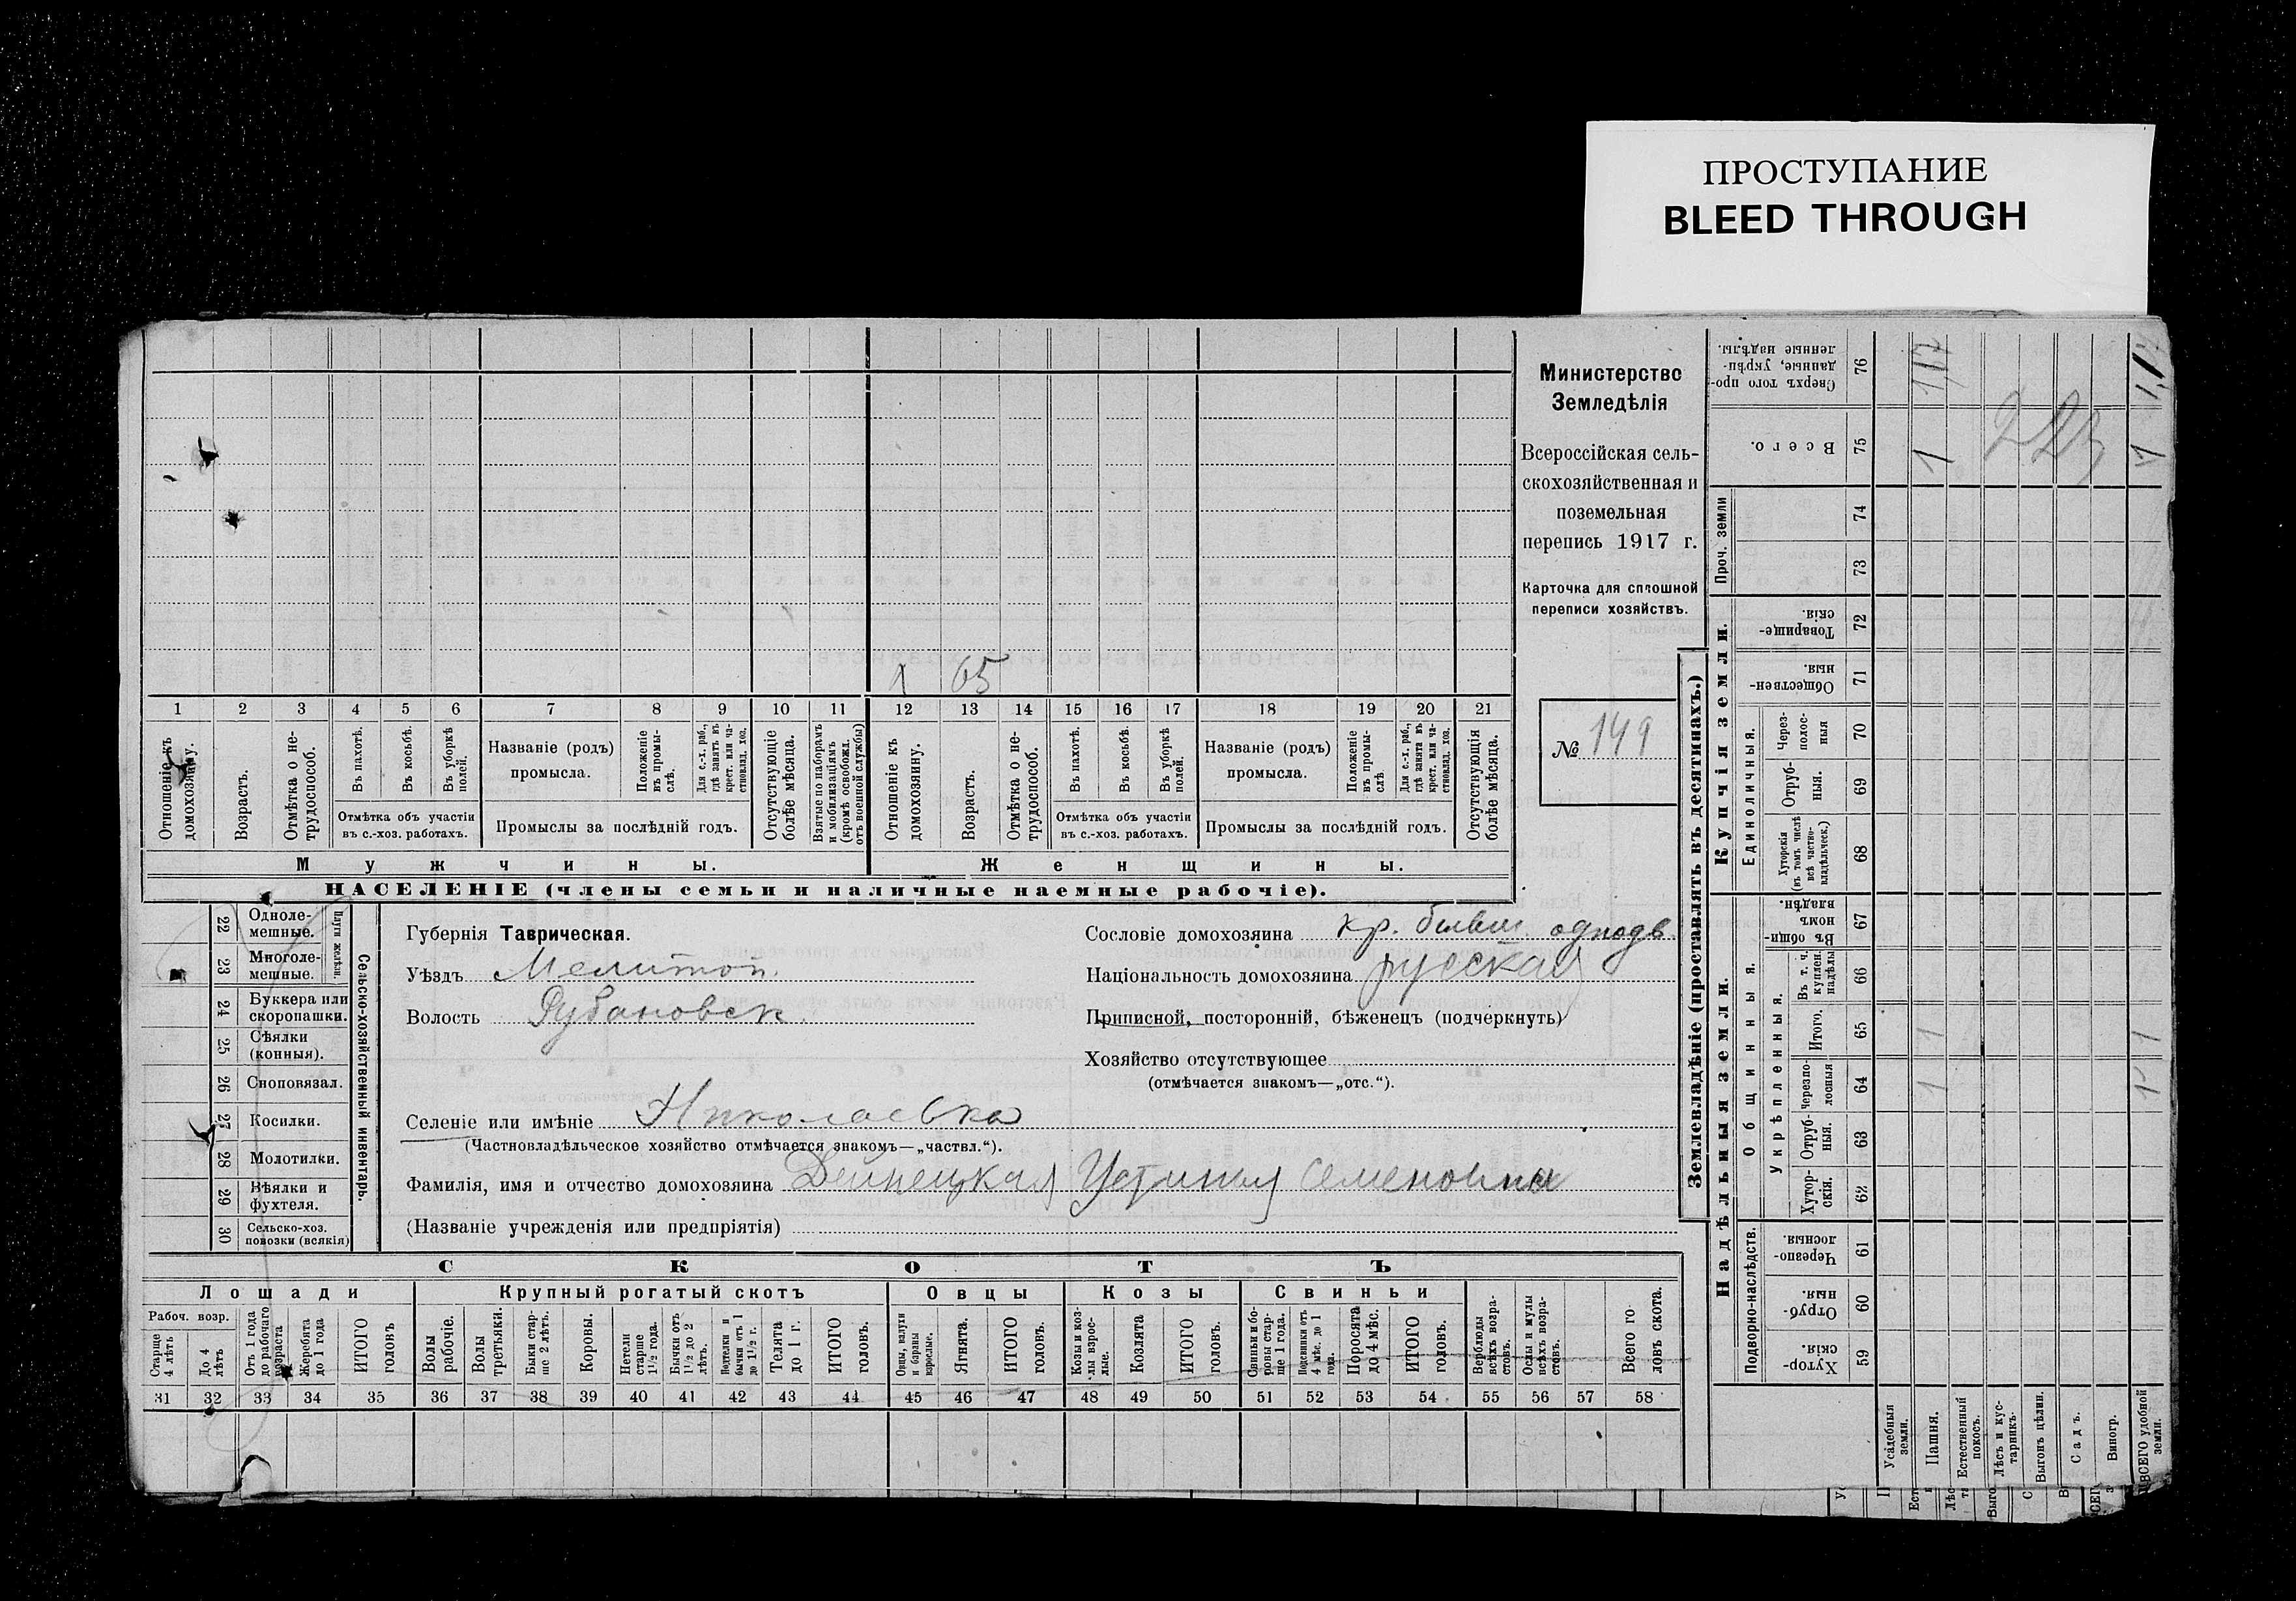 ПРОСТУПАНИЕ
BLEED THROUGH
Министерство
Земледѣлія
Всероссійская сель-
скохозяйственная и
поземельная
перепись 1917 г.
Карточка для сплошной
переписи хозяйствъ.
№ 149
1 65
1 2 3 4 5 6 7 8 9 10 11 12 13 14 15 16 17 18 19 20 21
Отношеніе къ домохозяину.
Возрастъ.
Отмѣтка о не-трудоспособ.
Въ пахотѣ.
Въ косьбѣ.
Въ уборкѣ полей.
Отмѣтка объ участіи
въ с.-хоз. работахъ.
Названіе (родъ)
промысла.
Положеніе въ промы-слѣ.
Для с.-х. раб., гдѣ занятъ въ крест. или ча-стновлад. хоз.
Промыслы за послѣдній годъ.
Отсутствующіе болѣе мѣсяца.
Взятые по наборамъ и мобилизаціямъ (кромѣ освобожд. отъ военной службы)
Отношеніе къ домохозяину.
Возрастъ.
Отмѣтка о не-трудоспособ.
Въ пахотѣ.
Въ косьбѣ.
Въ уборкѣ полей.
Отмѣтка объ участіи
въ с.-хоз. работахъ.
Названіе (родъ)
промысла.
Положеніе въ промы-слѣ
Для с.-х. раб., гдѣ занята въ крест. или ча-стновлад. хоз.
Промыслы за послѣдній годъ.
Отсутствующія болѣе мѣсяца.
Мужчины.
Женщины.
НАСЕЛЕНІЕ (члены семьи и наличные наемные рабочіе).
Сельско-хозяйственный инвентарь.
Плуги желѣзн.
22 Одноле-мешные.
23 Многоле-мешные.
24 Буккера или скоропашки.
25 Сѣялки (конныя).
26 Сноповязал.
27 Косилки.
28 Молотилки.
29 Вѣялки и фухтеля.
30 Сельско-хоз. повозки (всякія)
Губернія Таврическая.
Уѣздъ Мелитоп.
Волость Рубановск.
Сословіе домохозяина кр. бывш. однодв.
Національность домохозяина русская
Приписной, посторонній, бѣженецъ (подчеркнуть)
Хозяйство отсутствующее
(отмѣчается знакомъ—„отс.“).
Селеніе или имѣніе Николаевка
(Частновладѣльческое хозяйство отмѣчается знакомъ—„частвл.“).
Фамилія, имя и отчество домохозяина Дейнецкая Устинья Семеновна
(Названіе учрежденія или предпріятія)
СКОТЪ
Лошади
Крупный рогатый скотъ
Овцы
Козы
Свиньи
Рабоч. возр.
Старше 4 лѣтъ
До 4 лѣтъ
Отъ 1 года до рабочаго возраста
Жеребята до 1 года
ИТОГО головъ
Волы рабочіе.
Волы третьяки.
Быки стар-ше 2 лѣтъ.
Коровы.
Нетели старше 1½ года.
Бычки отъ 1½ до 2 лѣтъ.
Подтелки и бычки отъ 1 до 1½ г.
Телята до 1 г.
ИТОГО головъ.
Овцы, валухи и бараны взрослые.
Ягнята.
ИТОГО головъ.
Козы и коз-лы взрос-лые.
Козлята
ИТОГО головъ.
Свиньи и бо-ровы стар-ше 1 года.
Подсвинки отъ 4 мѣс. до 1 года.
Поросята до 4 мѣс.
ИТОГО головъ.
Верблюды всѣхъ возра-стовъ.
Ослы и мулы всѣхъ возра-стовъ.
Всего го-ловъ скота.
31 32 33 34 35 36 37 38 39 40 41 42 43 44 45 46 47 48 49 50 51 52 53 54 55 56 57 58
Землевладѣніе (проставлять въ десятинахъ.)
Надѣльныя земли.
Купчія земли.
Проч. земли
Подворно-наслѣдств.
Общинныя.
Укрѣпленныя.
Единоличныя.
Сверхъ того про-данные, укрѣп-ленные надѣлы. 76
Всего. 75
74
73
Товарище-скія. 72
Обществен-ныя. 71
Через-полос-ныя 70
Отруб-ныя. 69
Хуторскія (въ томъ числѣ всѣ частно-владѣльческ.) 68
Въ общин-номъ владѣн. 67
Въ т. ч. куплен. надѣлы 66
Итого. 65
Черезпо-лосныя 64
Отруб-ныя. 63
Хутор-скія. 62
Черезпо-лосныя. 61
Отруб-ныя. 60
Хутор-скія. 59
Усадебныя земли.
Пашня.
Естественный покосъ.
Лѣсъ и кус-тарникъ.
Выгонъ цѣлин.
Садъ.
Виногр.
ВСЕГО удобной земли.
1 1
1 1
1 1